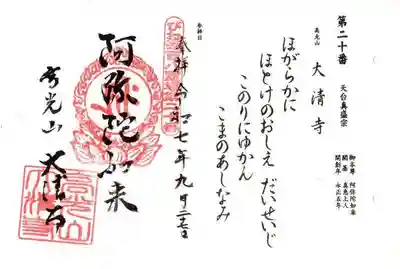 第二十番
天台真盛宗
御本尊 阿弥陀如来
開基 真恵上人
開創年 永正五年
高光山
大清寺
ほがらかに
ほとけのおしえ だいせいじ
このりにゆかん
こまのあしなみ
参拝日
奉拝 令和七年九月
阿弥陀如来
高光山 大清寺